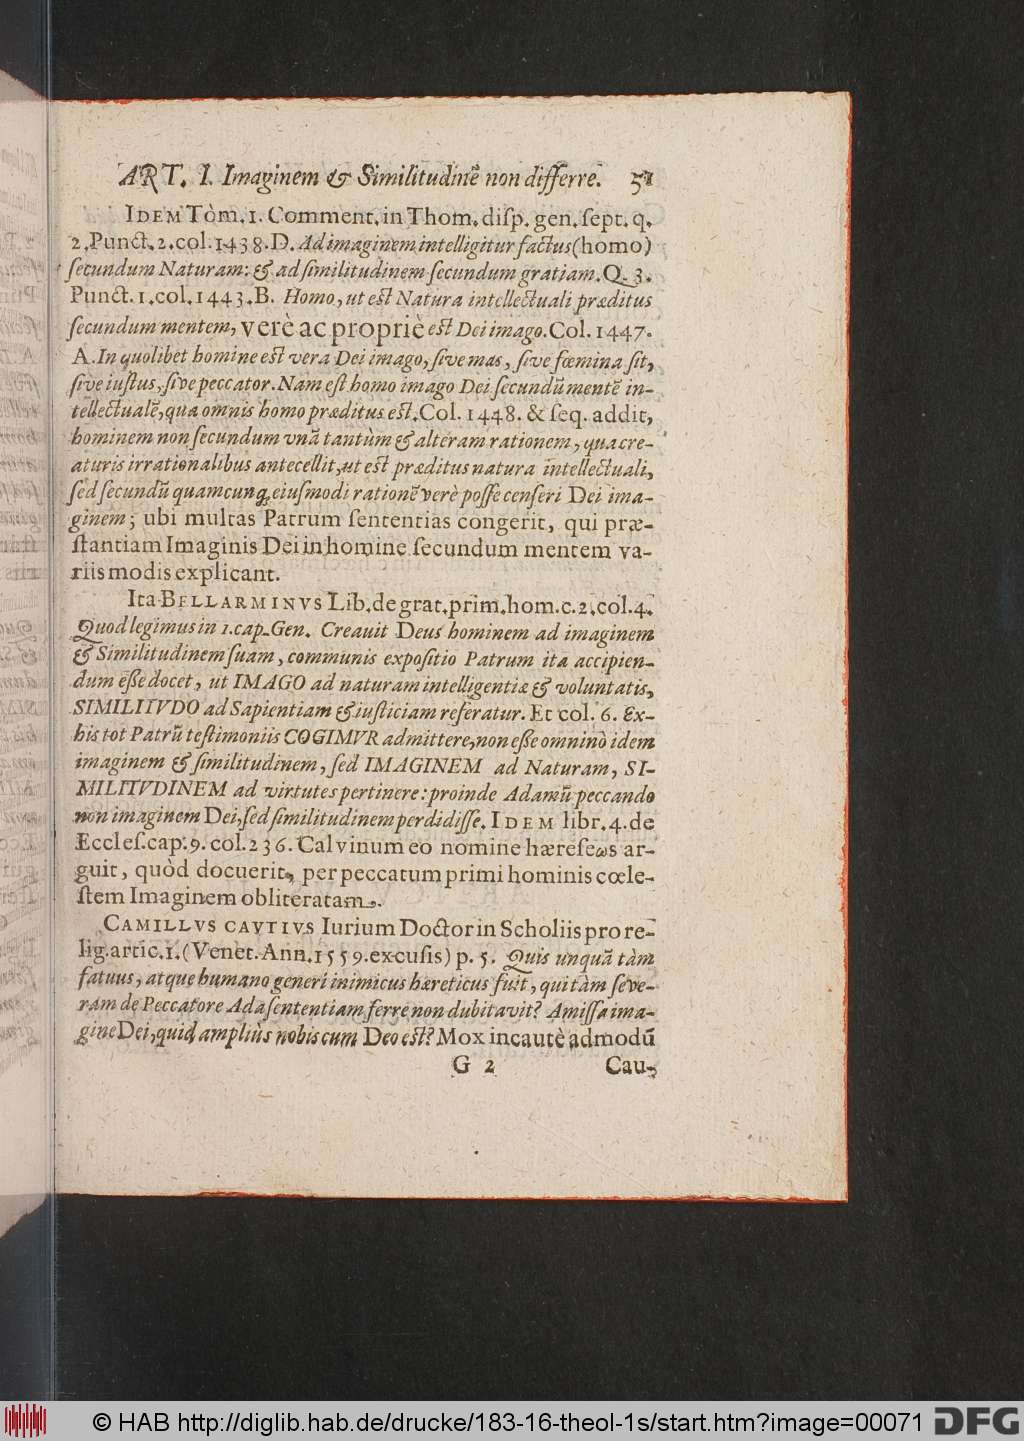 ART. I. Imaginem & Similitudinẽ non differre. 51
IDEM Tom. 1. Comment. in Thom. disp. gen. sept. q.
2. Punct. 2. col. 1438. D. Ad imaginem intelligitur factus (homo)
secundum Naturam: & ad similitudinem secundum gratiam. Q. 3.
Punct. 1. col. 1443. B. Homo, ut est Natura intellectuali præditus
secundum mentem, verè ac propriè est Dei imago. Col. 1447.
A. In quolibet homine est vera Dei imago, sive mas, sive fœmina sit,
sive iustus, sive peccator. Nam est homo imago Dei secundũ mentẽ in-
tellectualẽ, qua omnis homo præditus est. Col. 1448. & seq. addit,
hominem non secundum vnã tantùm & alteram rationem, qua cre-
aturis irrationalibus antecellit, ut est præditus natura intellectuali,
sed secundũ quamcunq; eiusmodi rationẽ verè posse censeri Dei ima-
ginem; ubi multas Patrum sententias congerit, qui præ-
stantiam Imaginis Dei in homine secundum mentem va-
riis modis explicant.
Ita BELLARMINVS Lib. de grat. prim. hom. c. 2. col. 4.
Quod legimus in 1. cap. Gen. Creauit Deus hominem ad imaginem
& Similitudinem suam, communis expositio Patrum ita accipien-
dum esse docet, ut IMAGO ad naturam intelligentiæ & voluntatis,
SIMILITVDO ad Sapientiam & iusticiam referatur. Et col. 6. Ex-
his tot Patrũ testimoniis COGIMVR admittere, non esse omninò idem
imaginem & similitudinem, sed IMAGINEM ad Naturam, SI-
MILITVDINEM ad virtutes pertinere: proinde Adamũ peccando
non imaginem Dei, sed similitudinem perdidisse. IDEM libr. 4. de
Eccles. cap. 9. col. 236. Calvinum eo nomine hæreseωs ar-
guit, quòd docuerit, per peccatum primi hominis cœle-
stem Imaginem obliteratam.
CAMILLVS CAVTIVS Iurium Doctor in Scholiis pro re-
lig. artic. 1. (Venet. Ann. 1559. excusis) p. 5. Quis unquã tàm
fatuus, atque humano generi inimicus hæreticus fuit, qui tàm seve-
ram de Peccatore Ada sententiam ferre non dubitavit? Amissa ima-
gine Dei, quid ampliùs nobiscum Deo est? Mox incautè admodũ
G 2 Cau-
© HAB http://diglib.hab.de/drucke/183-16-theol-1s/start.htm?image=00071 DFG